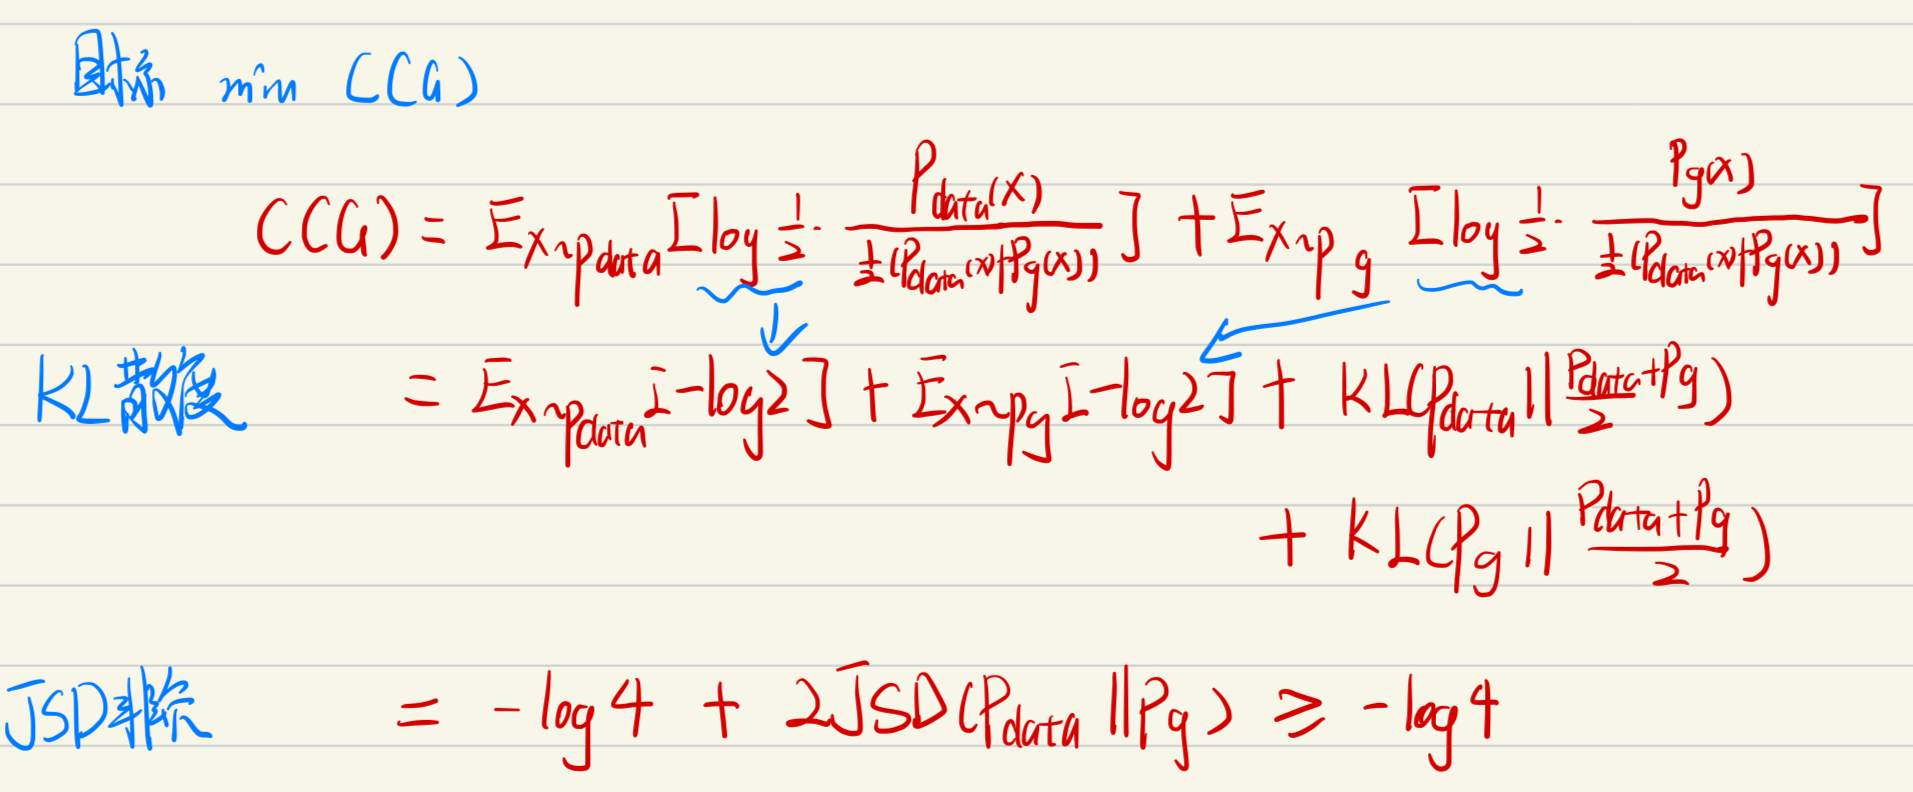 目标 min C(G)
C(G) = E_{x~p_{data}}[log \frac{1}{2} · \frac{P_{data}(x)}{\frac{1}{2}(P_{data}(x)+P_g(x))}] + E_{x~p_g}[log \frac{1}{2} · \frac{P_g(x)}{\frac{1}{2}(P_{data}(x)+P_g(x))}]
KL散度 = E_{x~p_{data}}[-log2] + E_{x~p_g}[-log2] + KL(P_{data} || \frac{P_{data}+P_g}{2})
+ KL(P_g || \frac{P_{data}+P_g}{2})
JSD = -log4 + 2JSD(P_{data} || P_g) ≥ -log4